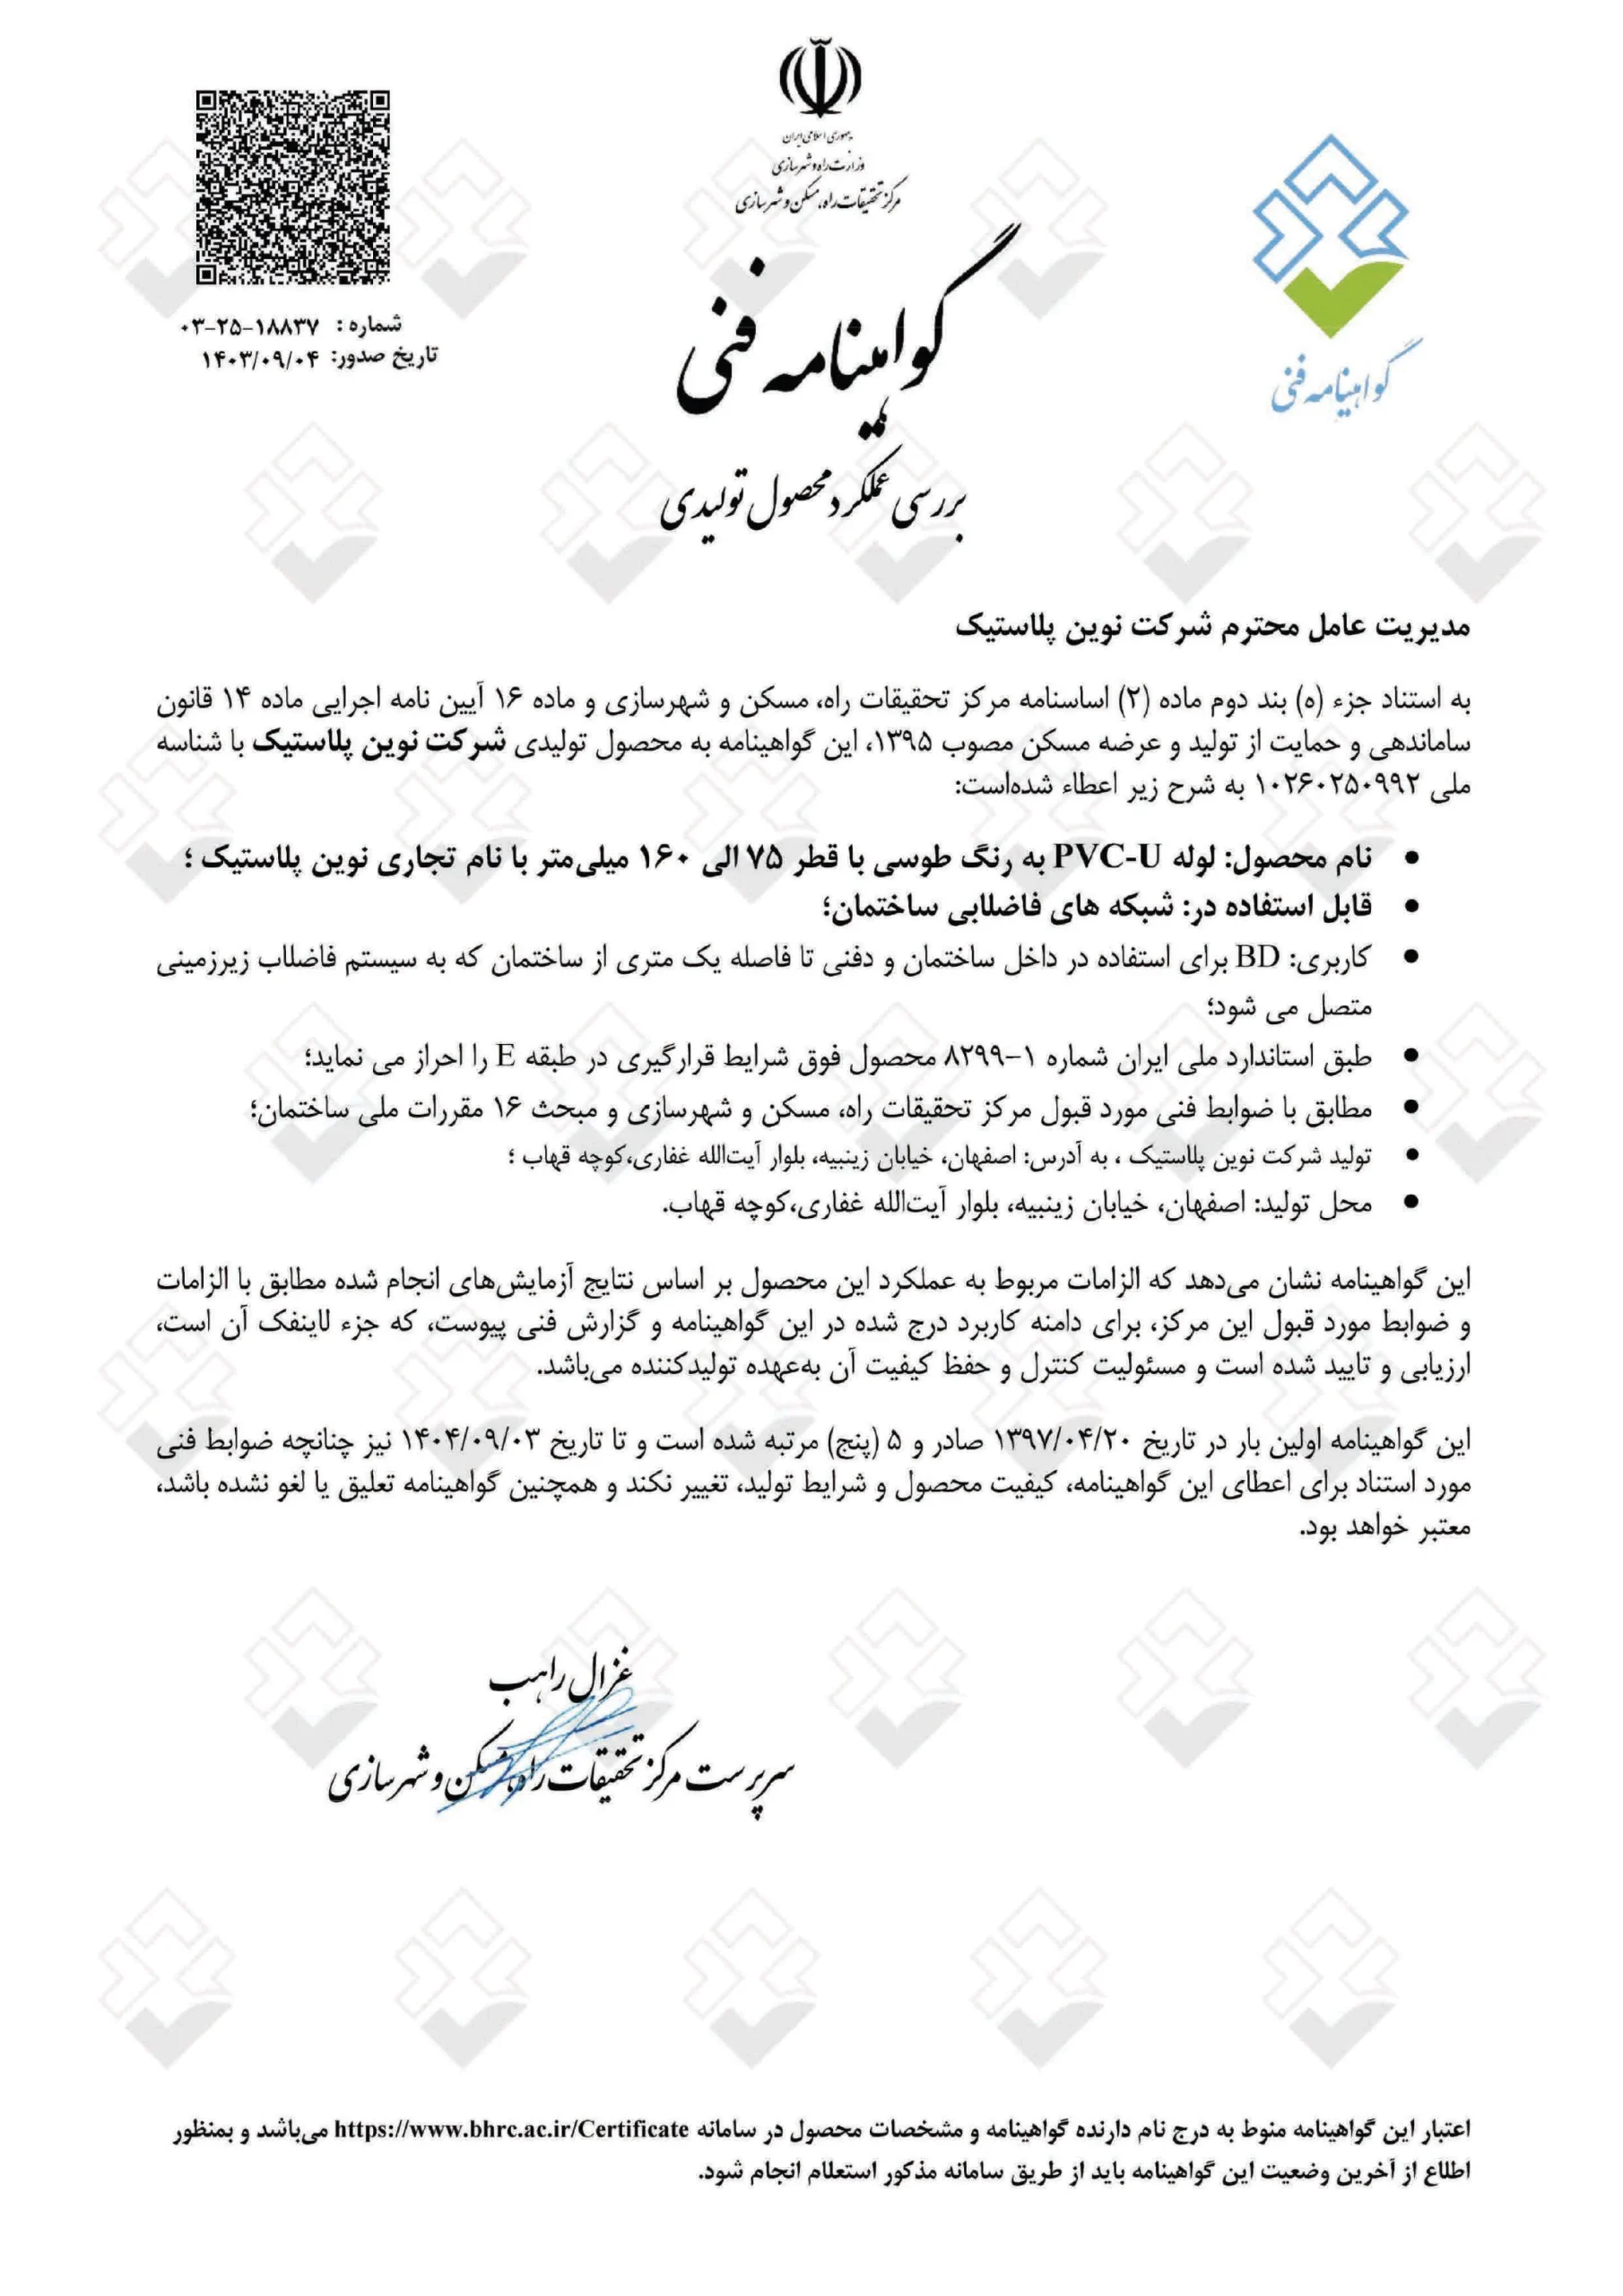 جمهوری اسلامی ایران
وزارت راه و شهرسازی
مرکز تحقیقات راه، مسکن و شهرسازی
گواهینامه فنی
بررسی عملکرد محصول تولیدی
گواهینامه فنی
شماره : ۰۳-۲۵-۱۸۸۳۷
تاریخ صدور: ۱۴۰۳/۰۹/۰۴
مدیریت عامل محترم شرکت نوین پلاستیک
به استناد جزء (ه) بند دوم ماده (۲) اساسنامه مرکز تحقیقات راه، مسکن و شهرسازی و ماده ۱۶ آیین نامه اجرایی ماده ۱۴ قانون
ساماندهی و حمایت از تولید و عرضه مسکن مصوب ۱۳۹۵، این گواهینامه به محصول تولیدی شرکت نوین پلاستیک با شناسه
ملی ۱۰۲۶۰۲۵۰۹۹۲ به شرح زیر اعطاء شده‌است:
• نام محصول: لوله PVC-U به رنگ طوسی با قطر ۷۵ الی ۱۶۰ میلی‌متر با نام تجاری نوین پلاستیک ؛
• قابل استفاده در: شبکه های فاضلابی ساختمان؛
• کاربری: BD برای استفاده در داخل ساختمان و دفنی تا فاصله یک متری از ساختمان که به سیستم فاضلاب زیرزمینی
متصل می شود؛
• طبق استاندارد ملی ایران شماره ۱-۸۲۹۹ محصول فوق شرایط قرارگیری در طبقه E را احراز می نماید؛
• مطابق با ضوابط فنی مورد قبول مرکز تحقیقات راه، مسکن و شهرسازی و مبحث ۱۶ مقررات ملی ساختمان؛
• تولید شرکت نوین پلاستیک ، به آدرس: اصفهان، خیابان زینبیه، بلوار آیت‌الله غفاری،کوچه قهاب ؛
• محل تولید: اصفهان، خیابان زینبیه، بلوار آیت‌الله غفاری،کوچه قهاب.
این گواهینامه نشان می‌دهد که الزامات مربوط به عملکرد این محصول بر اساس نتایج آزمایش‌های انجام شده مطابق با الزامات
و ضوابط مورد قبول این مرکز، برای دامنه کاربرد درج شده در این گواهینامه و گزارش فنی پیوست، که جزء لاینفک آن است،
ارزیابی و تایید شده است و مسئولیت کنترل و حفظ کیفیت آن به‌عهده تولیدکننده می‌باشد.
این گواهینامه اولین بار در تاریخ ۱۳۹۷/۰۴/۲۰ صادر و ۵ (پنج) مرتبه شده است و تا تاریخ ۱۴۰۴/۰۹/۰۳ نیز چنانچه ضوابط فنی
مورد استناد برای اعطای این گواهینامه، کیفیت محصول و شرایط تولید، تغییر نکند و همچنین گواهینامه تعلیق یا لغو نشده باشد،
معتبر خواهد بود.
غزال راهب
سرپرست مرکز تحقیقات راه، مسکن و شهرسازی
اعتبار این گواهینامه منوط به درج نام دارنده گواهینامه و مشخصات محصول در سامانه https://www.bhrc.ac.ir/Certificate می‌باشد و بمنظور
اطلاع از آخرین وضعیت این گواهینامه باید از طریق سامانه مذکور استعلام انجام شود.